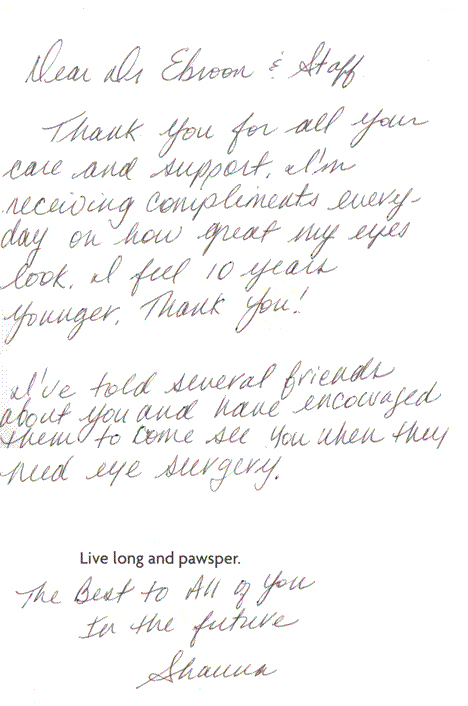 Dear Dr Ebroon & Staff
Thank you for all your
care and support. I'm
receiving compliments every-
day on how great my eyes
look. I feel 10 years
younger. Thank you!
I've told several friends
about you and have encouraged
them to come see you when they
need eye surgery.
Live long and pawsper.
The Best to All of you
In the future
Shauna